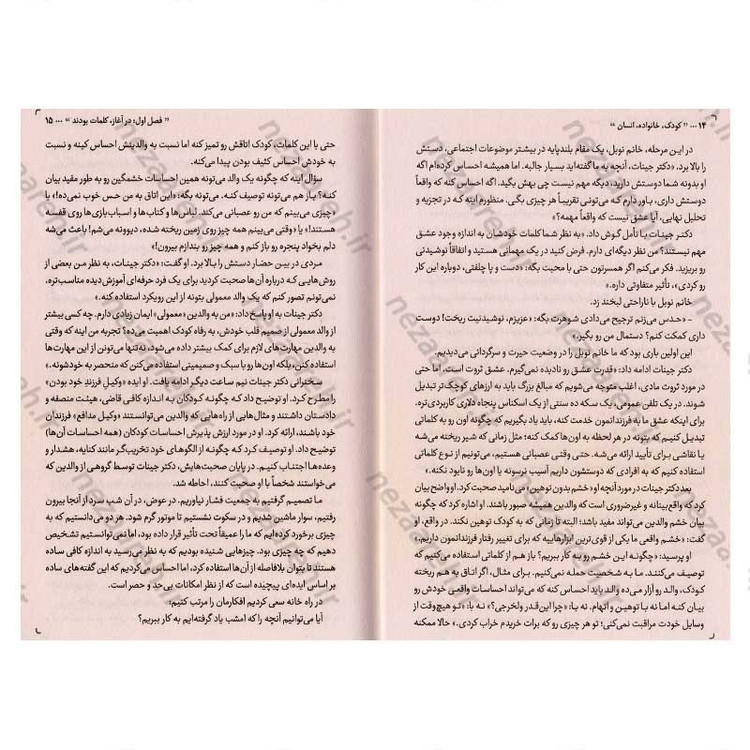 ۱۴ ... " کودک، خانواده، انسان "
در این مرحله، خانم نوبل، یک مقام بلندپایه در بیشتر موضوعات اجتماعی، دستش
را بالا برد. «دکتر جینات، آنچه به ما گفته‌اید بسیار جالبه. اما همیشه احساس کرده‌ام اگه
او بدونه شما دوستش دارید، دیگه مهم نیست چی بهش بگید. اگه احساس کنه که واقعاً
دوستش داری، باور دارم که می‌تونی تقریباً هر چیزی بگی. منظورم اینه که در تجزیه و
تحلیل نهایی، آیا عشق نیست که واقعاً مهمه؟»
دکتر جینات با تأمل گوش داد. «به نظر شما کلمات خودشان به اندازه وجود عشق
مهم نیستند؟ من نظر دیگه‌ای دارم. فرض کنید در یک مهمانی هستید و اتفاقاً نوشیدنی
رو بریزید. فکر می‌کنم اگر همسرتون حتی با محبت بگه: «دست و پا چلفتی، دوباره این کار
رو کردی»، تأثیر متفاوتی داره.»
خانم نوبل با ناراحتی لبخند زد.
- «حدس می‌زنم ترجیح می‌دادی شوهرت بگه: «عزیزم، نوشیدنیت ریخت! دوست
داری کمکت کنم؟ دستمال من رو بگیر.»
این اولین باری بود که ما خانم نوبل را در وضعیت حیرت و سرگردانی می‌دیدیم.
دکتر جینات ادامه داد: «قدرت عشق رو نادیده نمی‌گیرم. عشق ثروت است، اما حتی
در مورد ثروت مادی، اغلب متوجه می‌شویم که مبالغ بزرگ باید به ارزهای کوچک‌تر تبدیل
شوند. در یک تلفن عمومی، یک سکه ده سنتی از یک اسکناس پنجاه دلاری کاربردی‌تره.
برای اینکه عشق ما به فرزندانمون خدمت کنه، باید یاد بگیریم که چگونه اون رو به کلماتی
تبدیل کنیم که بتونه در هر لحظه به اون‌ها کمک کنه؛ مثل زمانی که شیر ریخته می‌شه
یا نقاشی برای تأیید ارائه می‌شه. حتی وقتی عصبانی هستیم، می‌تونیم از نوع کلماتی
استفاده کنیم که به افرادی که دوستشون داریم آسیب نرسونه یا اون‌ها رو نابود نکنه.»
بعد دکتر جینات در مورد آنچه او «خشم بدون توهین» می‌نامید صحبت کرد. او واضح بیان
کرد که واقع‌بینانه و غیرضروری است که والدین همیشه صبور باشند. او اشاره کرد که چگونه
بیان خشم والدین می‌تواند مفید باشد؛ البته تا زمانی که به کودک توهین نکند. در واقع، او
گفت: «خشم واقعی ما یکی از قوی‌ترین ابزارهاییه که برای تغییر رفتار فرزندانمون داریم.»
او پرسید: «چگونه این خشم رو به کار ببریم؟ باز هم از کلماتی استفاده می‌کنیم که
توصیف می‌کنند. ما به شخصیت حمله نمی‌کنیم. برای مثال، اگر اتاق به هم ریخته
کودک، والد رو آزار می‌ده، والد باید احساس کنه که می‌تواند احساسات واقعی خودش رو
بیان کنه اما نه با توهین و اتهام. نه با: «چرا این‌قدر ولخرجی؟» نه با: «تو هیچ‌وقت از
وسایل خودت مراقبت نمی‌کنی؛ تو هر چیزی رو که برات خریدم خراب کردی.» حالا ممکنه
" فصل اول؛ در آغاز، کلمات بودند " ... ۱۵
حتی با این کلمات، کودک اتاقش رو تمیز کنه اما نسبت به والدینش احساس کینه و نسبت
به خودش احساس کثیف بودن پیدا می‌کنه.
سؤال اینه که چگونه یک والد می‌تونه همین احساسات خشمگین رو به طور مفید بیان
کنه؟ باز هم می‌تونه توصیف کنه. می‌تونه بگه: «این اتاق به من حس خوب نمی‌ده!» یا
«چیزی می‌بینم که من رو عصبانی می‌کند. لباس‌ها و کتاب‌ها و اسباب‌بازی‌ها روی قفسه
هستند!» یا «وقتی می‌بینم همه چیز روی زمین ریخته شده، دیوونه می‌شم! باعث می‌شه
دلم بخواد پنجره رو باز کنم و همه چیز رو بندازم بیرون!»
مردی در بین حضار دستش را بالا برد. او گفت: «دکتر جینات، به نظر من بعضی از
روش‌هایی که درباره آن‌ها صحبت کردید برای یک فرد حرفه‌ای آموزش‌دیده مناسب‌تره.
نمی‌تونم تصور کنم که یک والد معمولی بتونه از این رویکرد استفاده کنه.»
دکتر جینات به او پاسخ داد: «من به والدین «معمولی» ایمان زیادی دارم. چه کسی بیشتر
از والد معمولی از صمیم قلب خودش، به رفاه کودک اهمیت می‌ده؟ تجربه من اینه که وقتی
به والدین مهارت های لازم برای کمک بیشتر داده می‌شود، نه‌تنها می‌تونن از این مهارت‌ها
استفاده کنن، بلکه اون‌ها رو با سبک و صمیمیتی استفاده می‌کنن که منحصر به خودشونه.»
سخنرانی دکتر جینات نیم ساعت دیگر ادامه یافت. او ایده «وکیلِ فرزند خود بودن»
را مطرح کرد. او توضیح داد که چگونه کودکان به اندازه کافی قاضی، هیئت منصفه و
دادستان داشتند و مثال‌هایی از راه‌هایی که والدین می‌توانستند «وکیل مدافع» فرزندان
خود باشند، ارائه کرد. او در مورد ارزش پذیرش احساسات کودکان (همه احساسات آن‌ها)
توضیح داد. او توصیف کرد که چگونه از الگوهای خود تخریب‌گر مانند کنایه، هشدار و
وعده‌ها اجتناب کنیم. در پایان صحبت‌هایش، دکتر جینات توسط گروهی از والدین که
می‌خواستند شخصاً با او صحبت کنند، احاطه شد.
ما تصمیم گرفتیم به جمعیت فشار نیاوریم. در عوض، در آن شب سرد از آنجا بیرون
رفتیم، سوار ماشین شدیم و در سکوت نشستیم تا موتور گرم شود. هر دو می‌دانستیم که به
چیزی برخورد کرده‌ایم که ما را عمیقاً تحت تأثیر قرار داده بود، اما نمی‌توانستیم تشخیص
دهیم که چه چیزی بود. چیزهایی شنیده بودیم که به نظر می‌رسید به اندازه کافی ساده
هستند تا بتوان بلافاصله از آن‌ها استفاده کرد، اما احساس می‌کردیم که این گفته‌های ساده
بر اساس ایده‌ای پیچیده است که از نظر امکانات بی‌حد و حصر است.
در راه خانه سعی کردیم افکارمان را مرتب کنیم:
آیا می‌توانیم آنچه را که امشب یاد گرفته‌ایم به کار ببریم؟